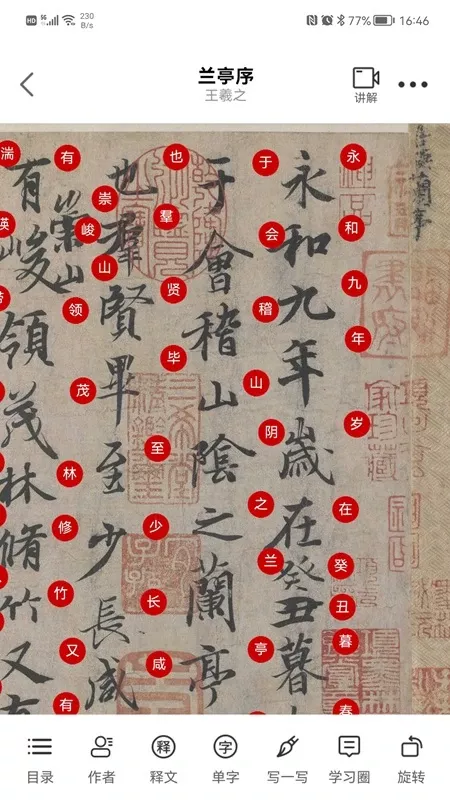 HD 5G 230 B/s
77% 16:46
兰亭序
王羲之
讲解
永和九年歲在癸丑暮
于會稽山陰之蘭亭
也羣賢畢至少長咸
有崇山峻領茂林脩竹又有
永和九年岁在癸丑暮春
于会稽山阴之兰亭
也羣贤毕至少长咸
有崇峻山领茂林修竹又有
湍
目录
作者
释
释文
字
单字
写一写
学习圈
旋转